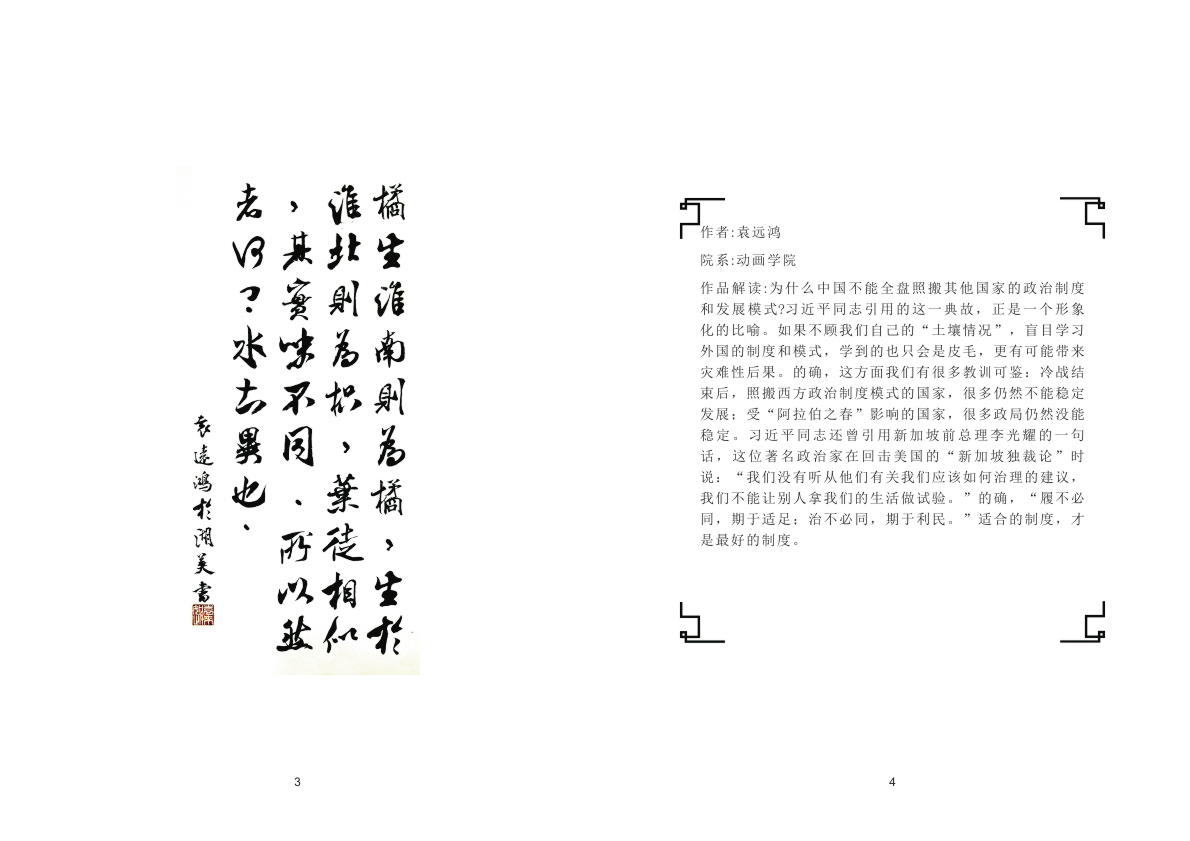 橘生淮南則為橘，生於
淮北則為枳，葉徒相似
，其實味不同．所以然
者何？水土異也．
袁遠鴻於湖美書
3
作者:袁远鸿
院系:动画学院
作品解读:为什么中国不能全盘照搬其他国家的政治制度
和发展模式?习近平同志引用的这一典故，正是一个形象
化的比喻。如果不顾我们自己的“土壤情况”，盲目学习
外国的制度和模式，学到的也只会是皮毛，更有可能带来
灾难性后果。的确，这方面我们有很多教训可鉴：冷战结
束后，照搬西方政治制度模式的国家，很多仍然不能稳定
发展；受“阿拉伯之春”影响的国家，很多政局仍然没能
稳定。习近平同志还曾引用新加坡前总理李光耀的一句
话，这位著名政治家在回击美国的“新加坡独裁论”时
说：“我们没有听从他们有关我们应该如何治理的建议，
我们不能让别人拿我们的生活做试验。”的确，“履不必
同，期于适足；治不必同，期于利民。”适合的制度，才
是最好的制度。
4